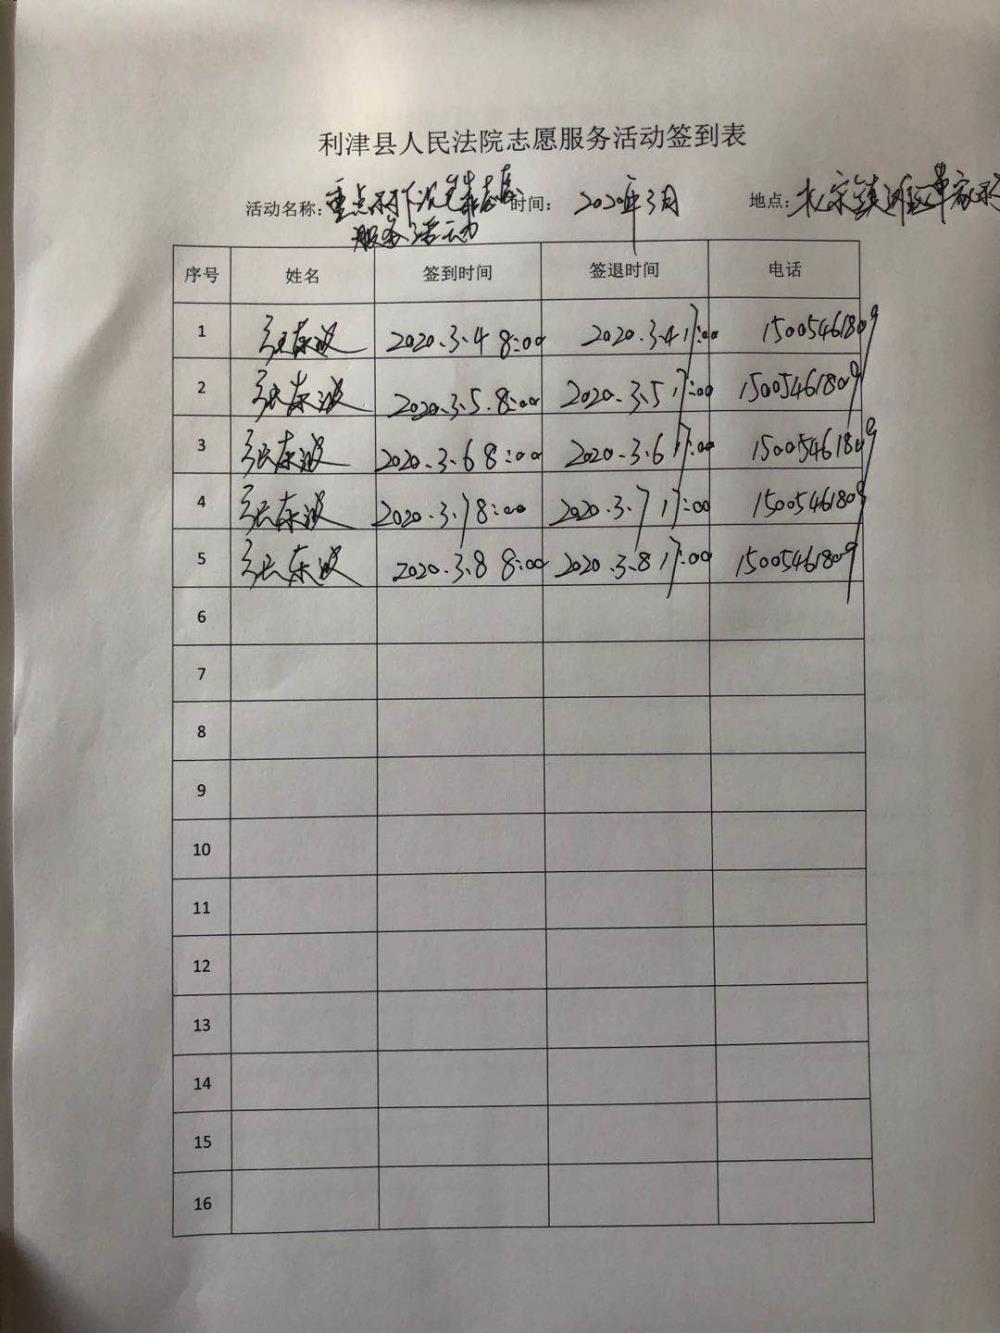 利津县人民法院志愿服务活动签到表
活动名称: 重点 时间: 2020年3月 地点:
服务活动
序号 姓名 签到时间 签退时间 电话
1 张东波 2020.3.4 8:00 2020.3.4 17:00 15005461809
2 张东波 2020.3.5. 8:00 2020.3.5 17:00 15005461809
3 张东波 2020.3.6 8:00 2020.3.6 17:00 15005461809
4 张东波 2020.3.7 8:00 2020.3.7 17:00 15005461809
5 张东波 2020.3.8 8:00 2020.3.8 17:00 15005461809
6
7
8
9
10
11
12
13
14
15
16